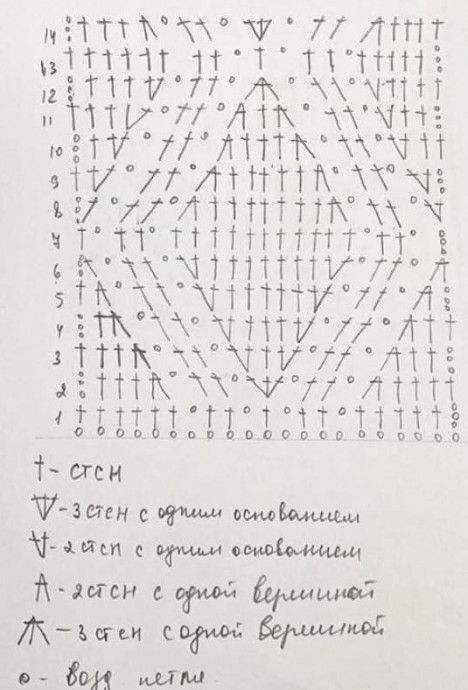 14
13
12
11
10
9
8
7
6
5
4
3
2
1
- стсн
- 3 стсн с одним основанием
- 2 стсн с одним основанием
- 2 стсн с одной вершиной
- 3 стсн с одной вершиной
- возд петля